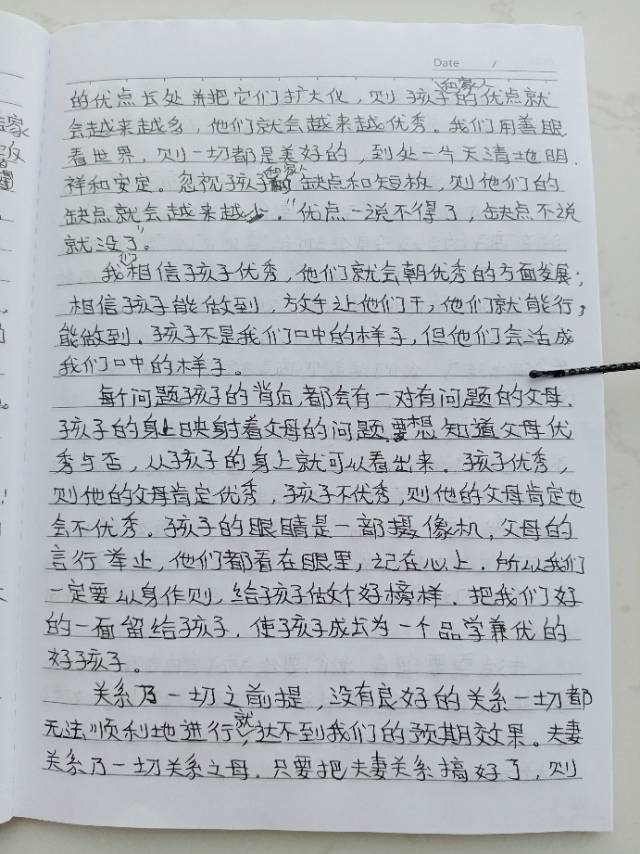 Date /
和家人
的优点长处并把它们扩大化，则孩子的优点就
会越来越多，他们就会越来越优秀。我们用善眼
看世界，则一切都是美好的，到处一个天清地明、
祥和安定。忽视孩子和家人的缺点和短板，则他们的
缺点就会越来越少。"优点一说不得了，缺点不说
就没了"。
我们相信孩子优秀，他们就会朝优秀的方面发展；
相信孩子能做到，放手让他们干，他们就能行，
能做到。孩子不是我们口中的样子，但他们会活成
我们口中的样子。
每个问题孩子的背后，都会有一对有问题的父母。
孩子的身上映射着父母的问题，要想知道父母优
秀与否，从孩子的身上就可以看出来。孩子优秀，
则他的父母肯定优秀，孩子不优秀，则他的父母肯定也
会不优秀。孩子的眼睛是一部摄像机，父母的
言行举止，他们都看在眼里，记在心上。所以我们
一定要以身作则，给孩子做个好榜样。把我们好
的一面留给孩子，使孩子成为一个品学兼优的
好孩子。
关系乃一切之前提，没有良好的关系一切都
无法顺利地进行，就达不到我们的预期效果。夫妻
关系乃一切关系之母。只要把夫妻关系搞好了，则